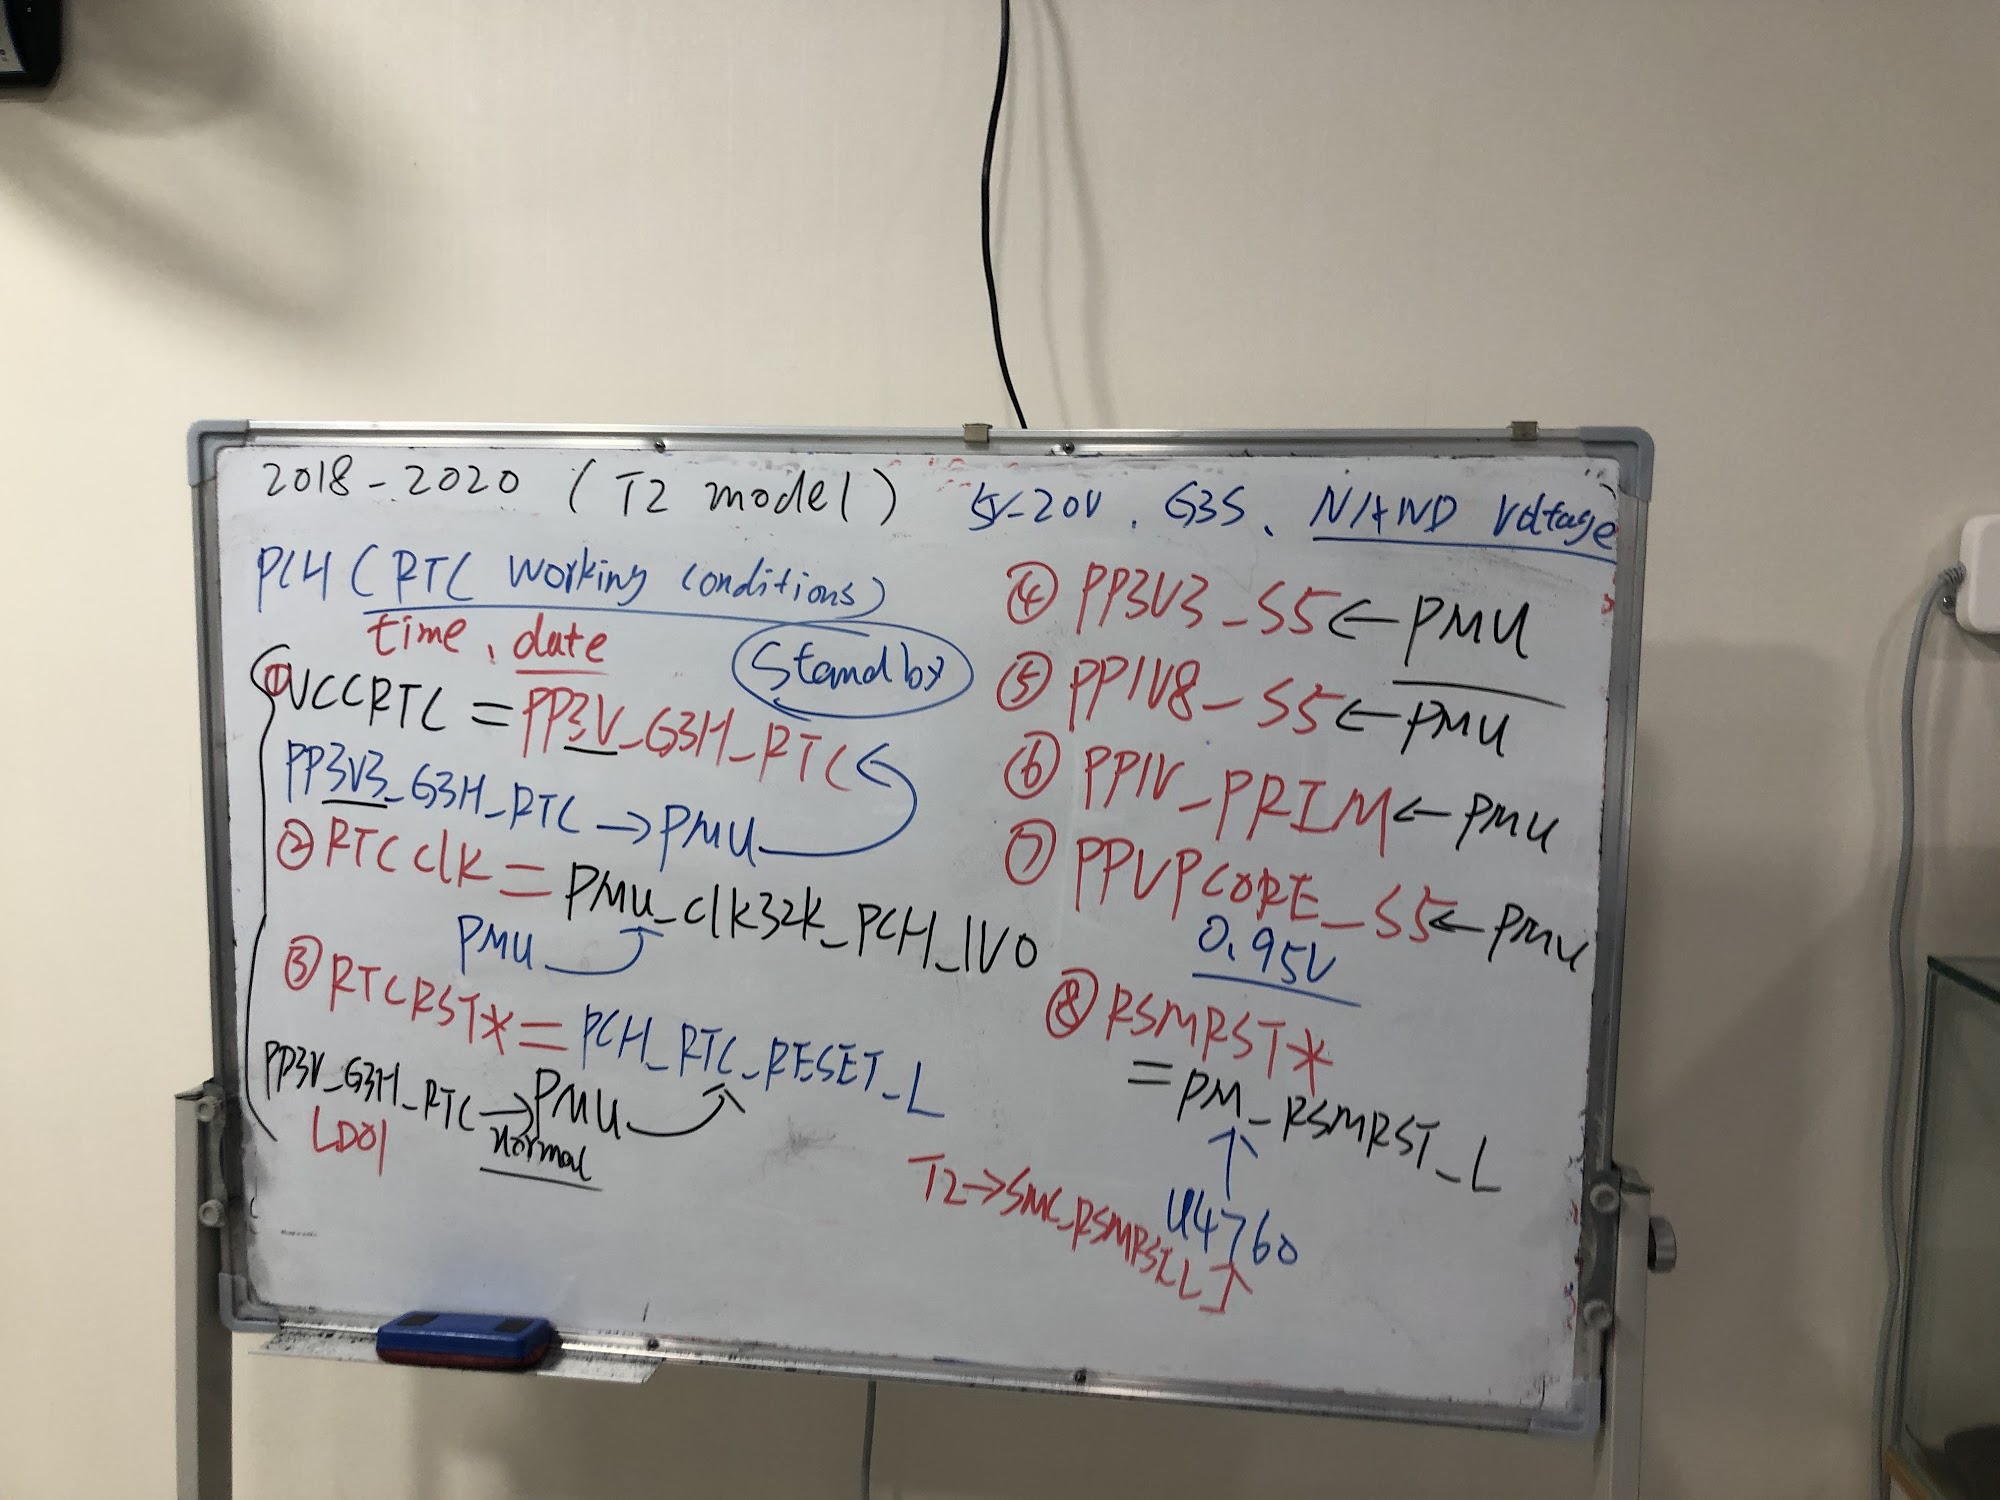 2018-2020 (T2 model) 5V-20V, G3S, NAND Voltage
PCH (RTC working conditions)
time, date
Standby
① VCCRTC = PP3V_G3H_RTC
PP3V3_G3H_RTC → PMU
② RTCCLK = PMU_CLK32K_PCH_1V0
PMU
③ RTCRST* = PCH_RTC_RESET_L
PP3V_G3H_RTC → PMU
LDO1 normal
④ PP3V3_S5 ← PMU
⑤ PP1V8_S5 ← PMU
⑥ PP1V_PRIM ← PMU
⑦ PPVPCORE_S5 ← PMU
0.95V
⑧ RSMRST*
= PM_RSMRST_L
U4760
T2 → SMC_RSMRST_L